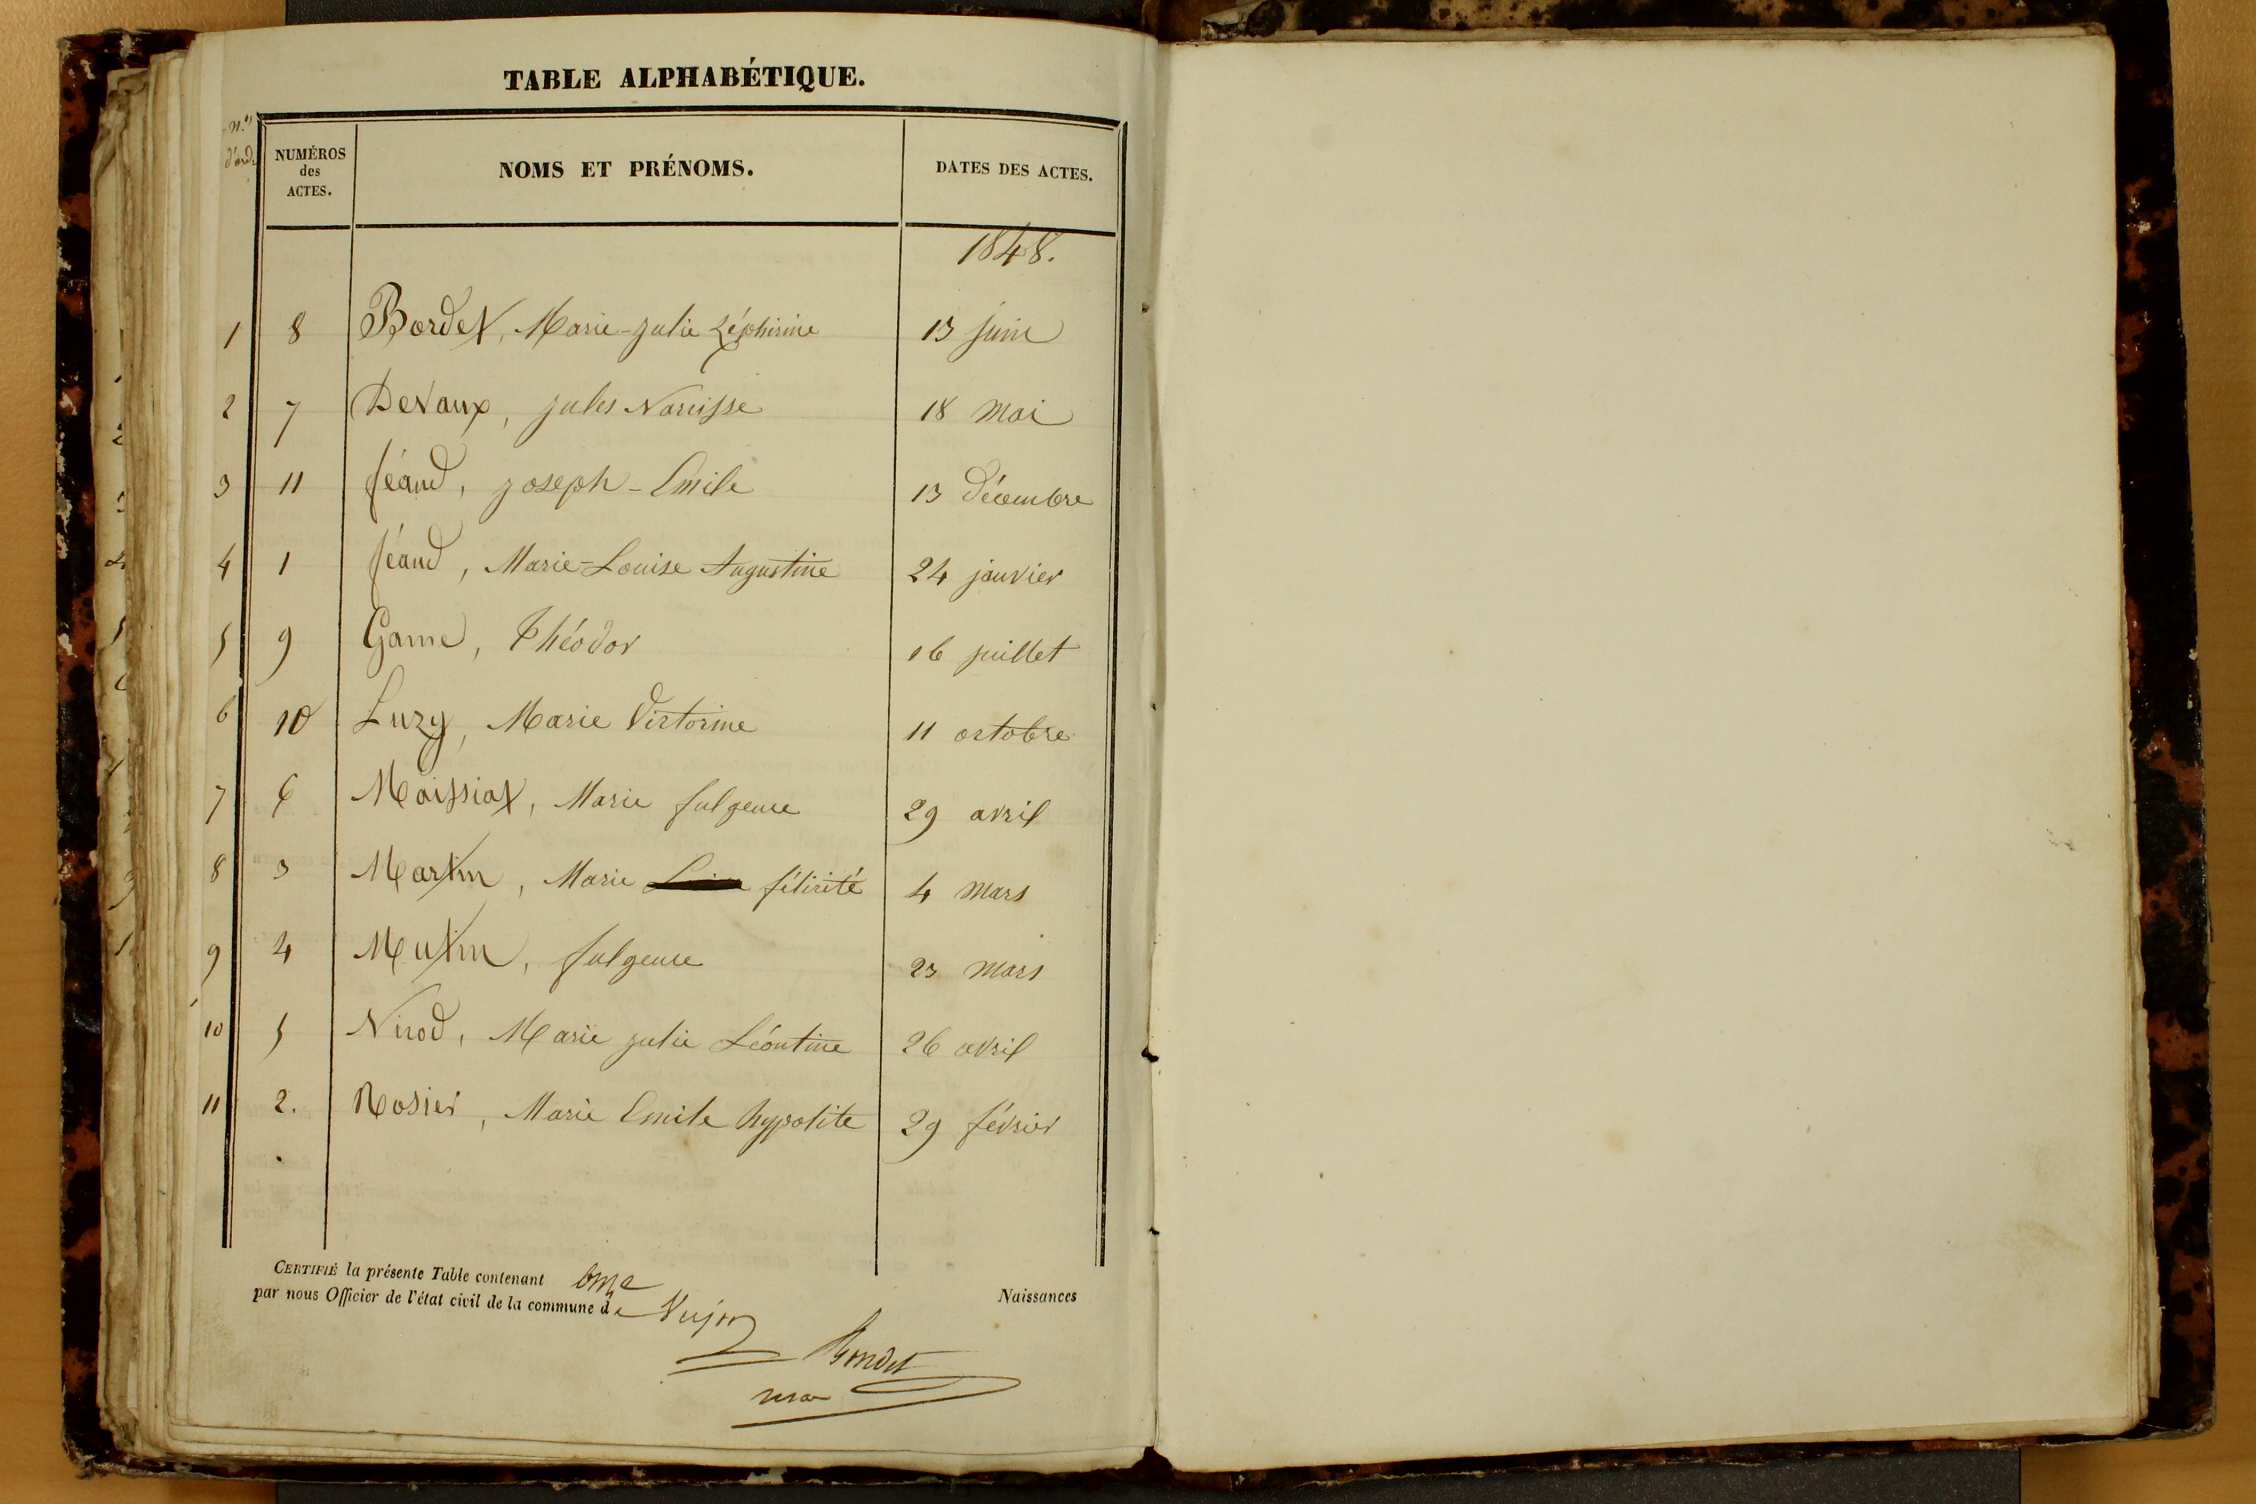 TABLE ALPHABÉTIQUE.
n.os d'ord.
NUMÉROS des ACTES.
NOMS ET PRÉNOMS.
DATES DES ACTES.
1848.
1 8 Bordet, Marie-julie Zéphirine 13 juin
2 7 Devaux, jules Narcisse 18 mai
3 11 féaud, joseph-Emile 13 décembre
4 1 féaud, Marie-Louise Augustine 24 janvier
5 9 Game, Théodor 16 juillet
6 10 Luzy, Marie Victorine 11 octobre
7 6 Moissiat, Marie fulgence 29 avril
8 3 Martin, Marie félicité 4 mars
9 4 Mutin, fulgence 23 mars
10 5 Nicod, Marie julie Léontine 26 avril
11 2. Rosier, Marie Emile hypolite 29 février
CERTIFIÉ la présente Table contenant onze Naissances
par nous Officier de l'état civil de la commune de